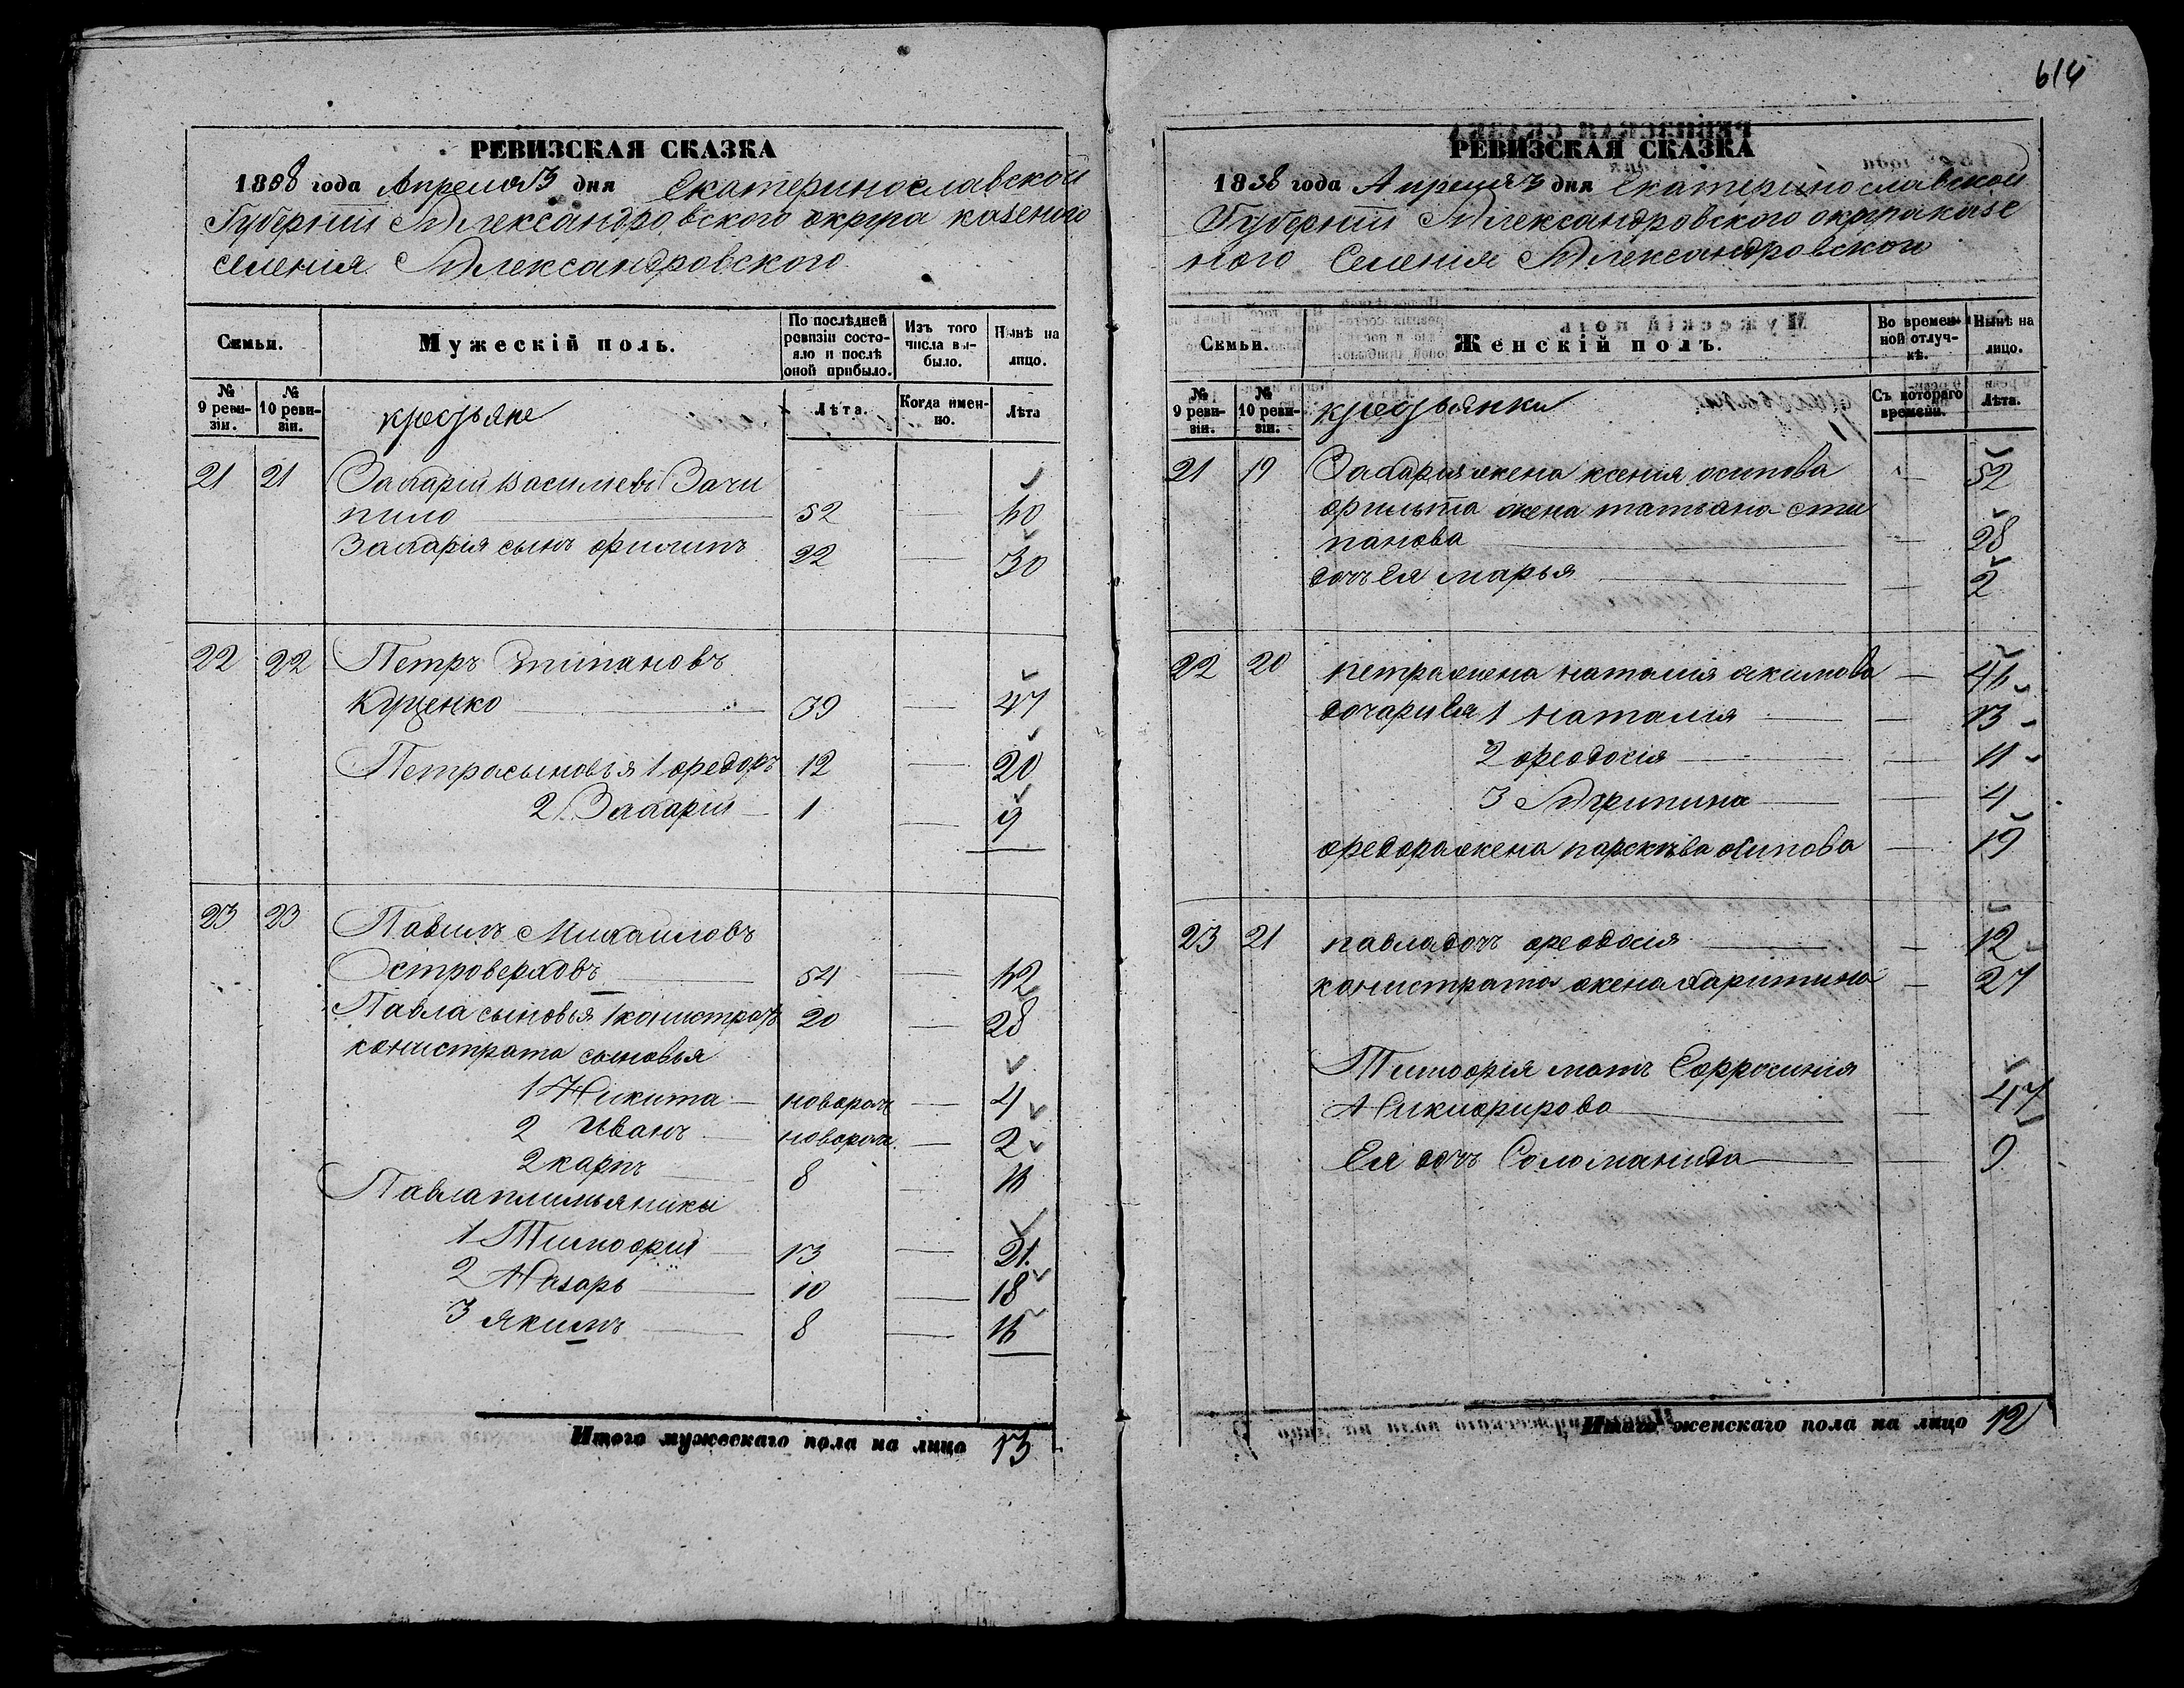 614
РЕВИЗСКАЯ СКАЗКА
1858 года Апреля 3 дня Екатеринославской
Губернiи Александровского округа казеного
селенiя Александровского
Семьи.
Мужескiй полъ.
По послѣдней ревизiи состояло и послѣ оной прибыло.
Изъ того числа выбыло.
Нынѣ на лицо.
№ 9 ревизiи.
№ 10 ревизiи.
крестьяне
Лѣта.
Когда именно.
Лѣта
21 21 Захарiй Василiевъ Зачи
пило 52 60
Захарiя сынъ филипъ 22 30
22 22 Петръ Стипановъ
Куценко 39 47
Петра сыновья 1 федоръ 12 20
2 Захарiй 1 9
23 23 Павилъ Михаиловъ
Островерховъ 54 62
Павла сыновья 1 конистратъ 20 28
конистрата сыновья
1 Никита новорож 4
2 Иванъ новорож. 2
2 карпъ 8 16
Павла плимьяники
1 Тимофей 13 21
2 Назарь 10 18
3 якимъ 8 16
Итого мужескаго пола на лицо 13
РЕВИЗСКАЯ СКАЗКА
1858 года Апреля 3 дня Екатеринославской
Губернiи Александровского округа казе
ного Селенiя Александровского
Семьи.
Женскiй полъ.
Во временной отлучкѣ.
Нынѣ на лицо.
№ 9 ревизiи.
№ 10 ревизiи.
крестьянки
Съ котораго времени.
Лѣта.
21 19 Захария жена ксенiя осипова 52
филипа жена татьяна сти
панова 28
дочь Ея марья 2
22 20 петра жена наталiя якимова 46
дочари Ея 1 наталiя 13
2 феодосiя 11
3 Агрипина 4
федора жена парскева осипова 19
23 21 павла дочь феодосiя 12
конистрата жена харитина 27
Тимофiя мать Ефросинiя
Никифирова 47
Ея дочь Соломанида 9
Итого женскаго пола на лицо 12